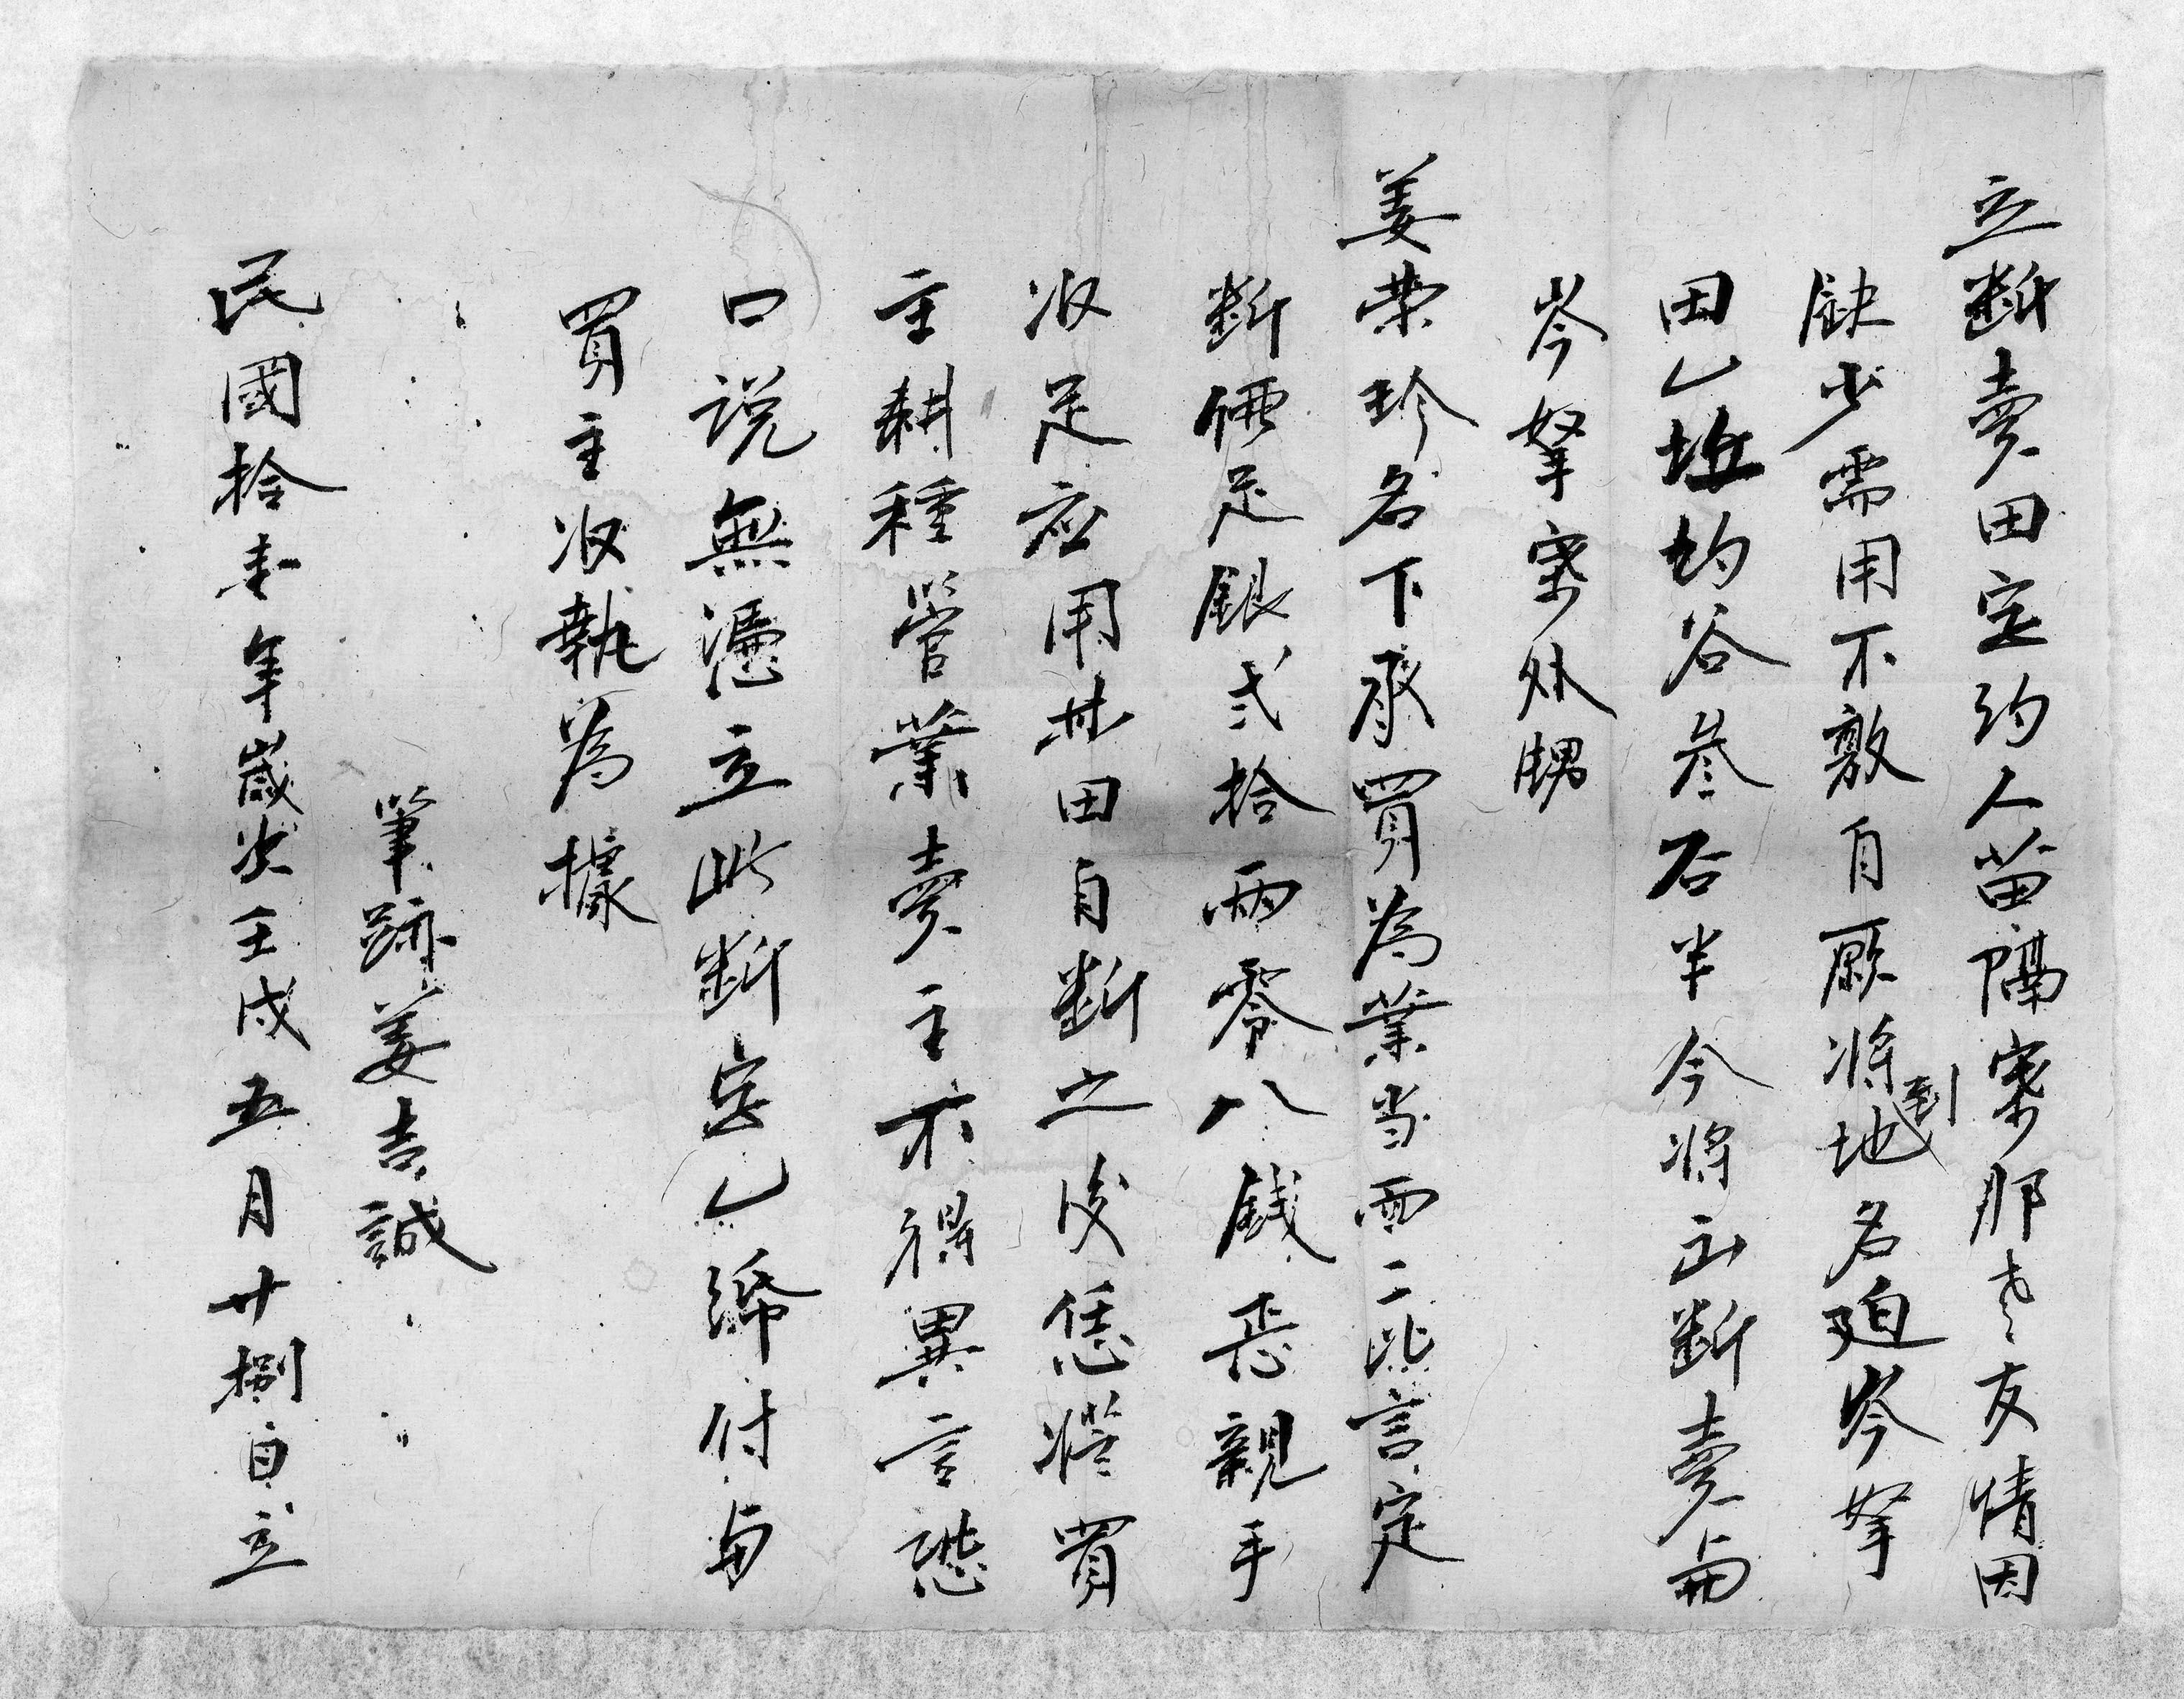 立断賣田定约人苗隔寨那老友情因
缺少需用不敷自願將到地名廹岑拏
田乚坵约谷叄石半今將出断賣与
岑拏寨外甥
姜荣珍名下承買為業当面二比言定
断價足銀弍拾兩零八錢丟親手
収足应用其田自断之後恁凴買
主耕種管業賣主不得異言恐
口说無憑立此断字乚紙付与
買主収執為據
筆跡姜吉誠
民國拾壹年歲次壬戌五月廿捌日立